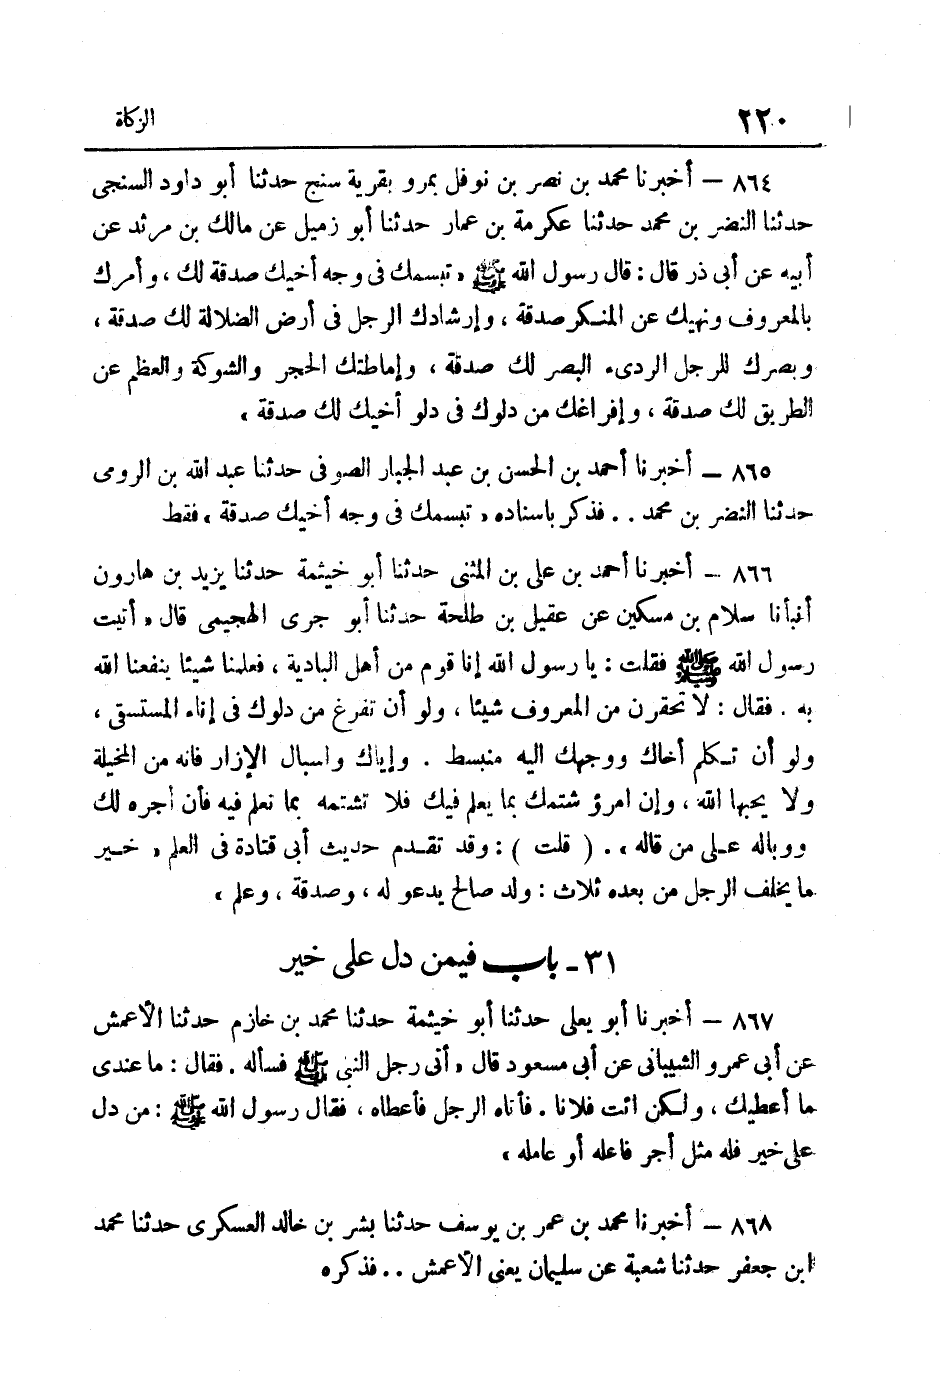 ٢٢٠ الزكاة
٨٦٤ – أخبرنا محمد بن نصر بن نوفل بمرو بقرية سنج حدثنا أبو داود السنجى
حدثنا النضر بن محمد حدثنا عكرمة بن عمار حدثنا أبو زميل عن مالك بن مرثد عن
أبيه عن أبى ذر قال : قال رسول الله ﷺ « تبسمك فى وجه أخيك صدقة لك ، وأمرك
بالمعروف ونهيك عن المنكر صدقة ، وإرشادك الرجل فى أرض الضلالة لك صدقة ،
وبصرك للرجل الردىء البصر لك صدقة ، وإماطتك الحجر والشوكة والعظم عن
الطريق لك صدقة ، وإفراغك من دلوك فى دلو أخيك لك صدقة »
٨٦٥ – أخبرنا أحمد بن الحسن بن عبد الجبار الصوفى حدثنا عبد الله بن الرومى
حدثنا النضر بن محمد . . فذكر باسناده « تبسمك فى وجه أخيك صدقة » فقط
٨٦٦ – أخبرنا أحمد بن على بن المثنى حدثنا أبو خيثمة حدثنا يزيد بن هارون
أنبأنا سلام بن مسكين عن عقيل بن طلحة حدثنا أبو جرى الهجيمى قال « أتيت
رسول الله ﷺ فقلت : يا رسول الله إنا قوم من أهل البادية ، فعلمنا شيئا ينفعنا الله
به . فقال : لا تحقرن من المعروف شيئا ، ولو أن تفرغ من دلوك فى إناء المستسقى ،
ولو أن تكلم أخاك ووجهك اليه منبسط . وإياك واسبال الإزار فانه من المخيلة
ولا يحبها الله ، وإن امرؤ شتمك بما يعلم فيك فلا تشتمه بما تعلم فيه فأن أجره لك
ووباله على من قاله » . ( قلت ) : وقد تقدم حديث أبى قتادة فى العلم « خير
ما يخلف الرجل من بعده ثلاث : ولد صالح يدعو له ، وصدقة ، وعلم »
٣١ - باب فيمن دل على خير
٨٦٧ – أخبرنا أبو يعلى حدثنا أبو خيثمة حدثنا محمد بن خازم حدثنا الأعمش
عن أبى عمرو الشيبانى عن أبى مسعود قال « أتى رجل النبى ﷺ فسأله . فقال : ما عندى
ما أعطيك ، ولكن ائت فلانا . فأتاه الرجل فأعطاه ، فقال رسول الله ﷺ : من دل
على خير فله مثل أجر فاعله أو عامله »
٨٦٨ – أخبرنا محمد بن عمر بن يوسف حدثنا بشر بن خالد العسكرى حدثنا محمد
ابن جعفر حدثنا شعبة عن سليمان يعنى الأعمش . . فذكره